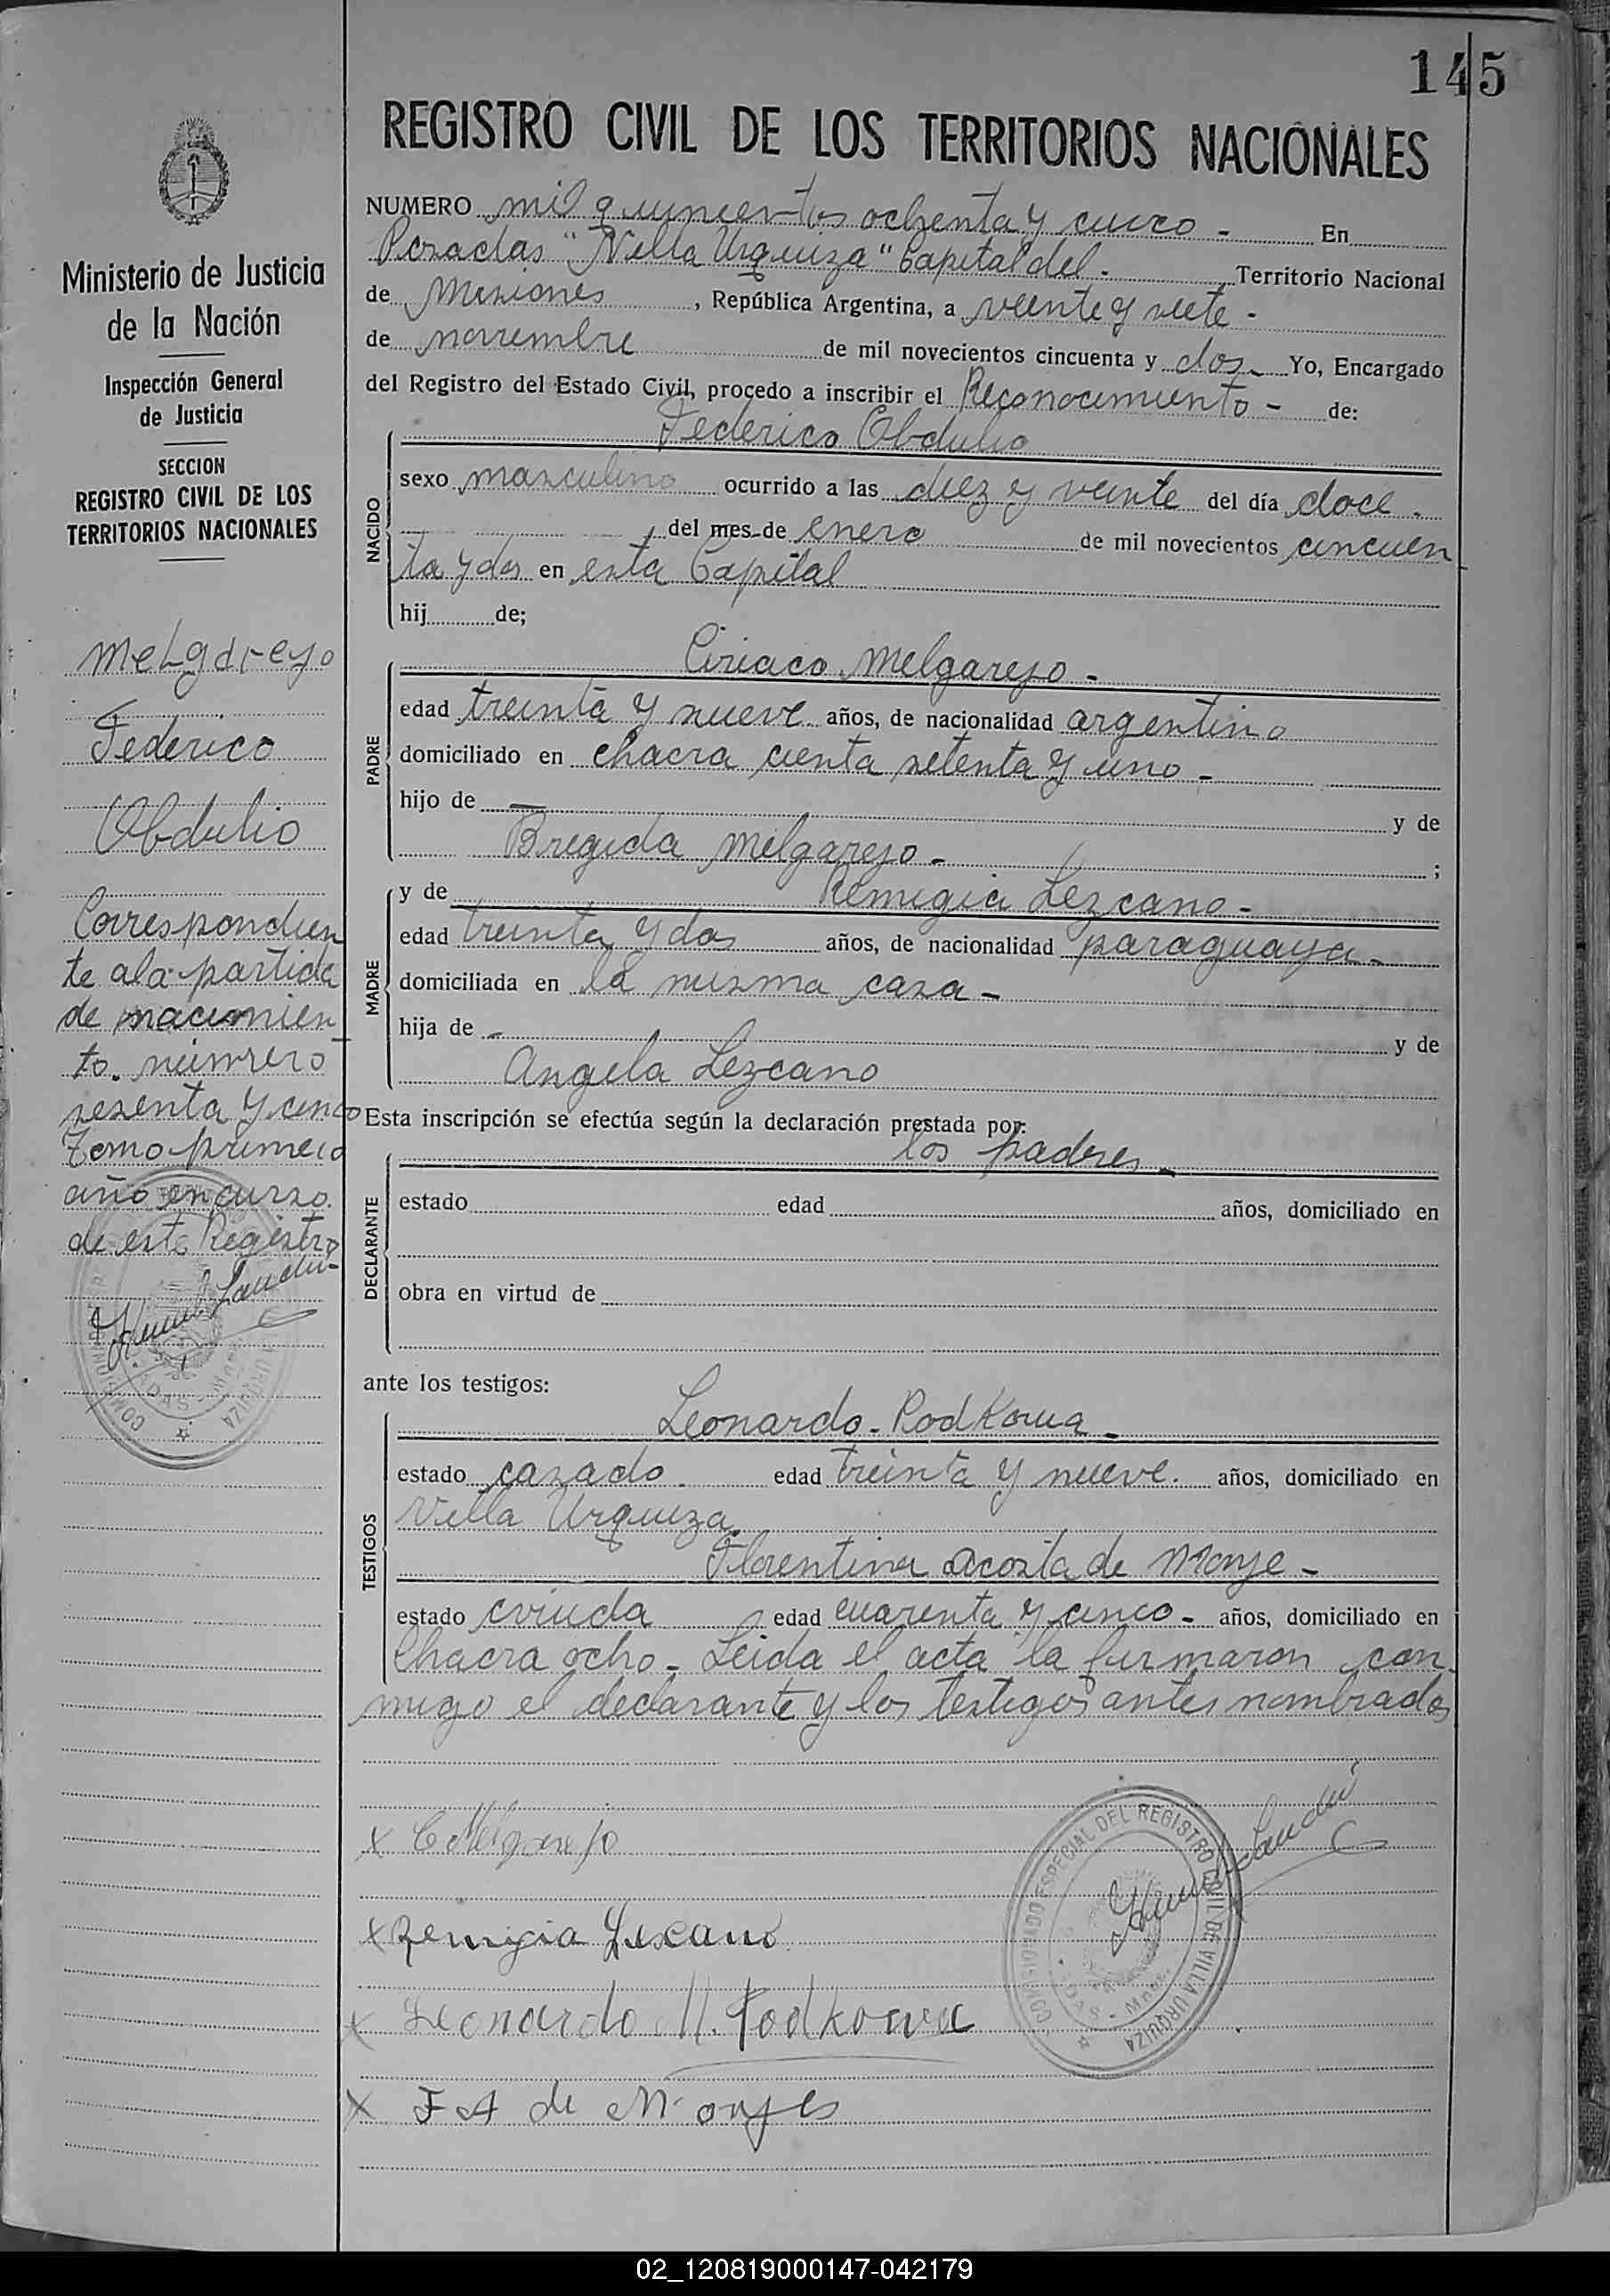 145
REGISTRO CIVIL DE LOS TERRITORIOS NACIONALES
Ministerio de Justicia
de la Nación
Inspección General
de Justicia
SECCION
REGISTRO CIVIL DE LOS
TERRITORIOS NACIONALES
Melgarejo
Federico
Obdulio
Correspondien
te a la partida
de nacimien
to. número
sesenta y cinco
Tomo primero
año en curso.
de este Registro
NUMERO mil quinientos ochenta y cinco - En
Posadas "Villa Urquiza" Capital del. Territorio Nacional
de Misiones, República Argentina, a veinte y siete -
de noviembre de mil novecientos cincuenta y dos - Yo, Encargado
del Registro del Estado Civil, procedo a inscribir el Reconocimiento - de:
Federico Obdulio
NACIDO
sexo masculino ocurrido a las diez y veinte del día doce -
del mes de enero de mil novecientos cincuen
ta y dos en esta Capital
hij de;
Ciriaco Melgarejo -
PADRE
edad treinta y nueve años, de nacionalidad argentino
domiciliado en chacra cienta setenta y uno -
hijo de — y de
Bregida Melgarejo - ;
y de Remigia Lezcano -
MADRE
edad treinta y dos años, de nacionalidad paraguaya -
domiciliada en la misma casa -
hija de - y de
Angela Lezcano
Esta inscripción se efectúa según la declaración prestada por:
los padres -
DECLARANTE
estado edad años, domiciliado en
obra en virtud de
ante los testigos:
Leonardo - Podkowa -
TESTIGOS
estado casado. edad treinta y nueve. años, domiciliado en
Villa Urquiza.
Florentina Acosta de Monje -
estado viuda edad cuarenta y cinco - años, domiciliado en
Chacra ocho - Leida el acta la firmaron con
migo el declarante y los testigos antes nombrados
x C Melgarejo
x Remigia Lescano
x Leonardo M. Podkowa
x F A de Monjes
COMISIONADO ESPECIAL DEL REGISTRO CIVIL DE VILLA URQUIZA
02_120819000147-042179